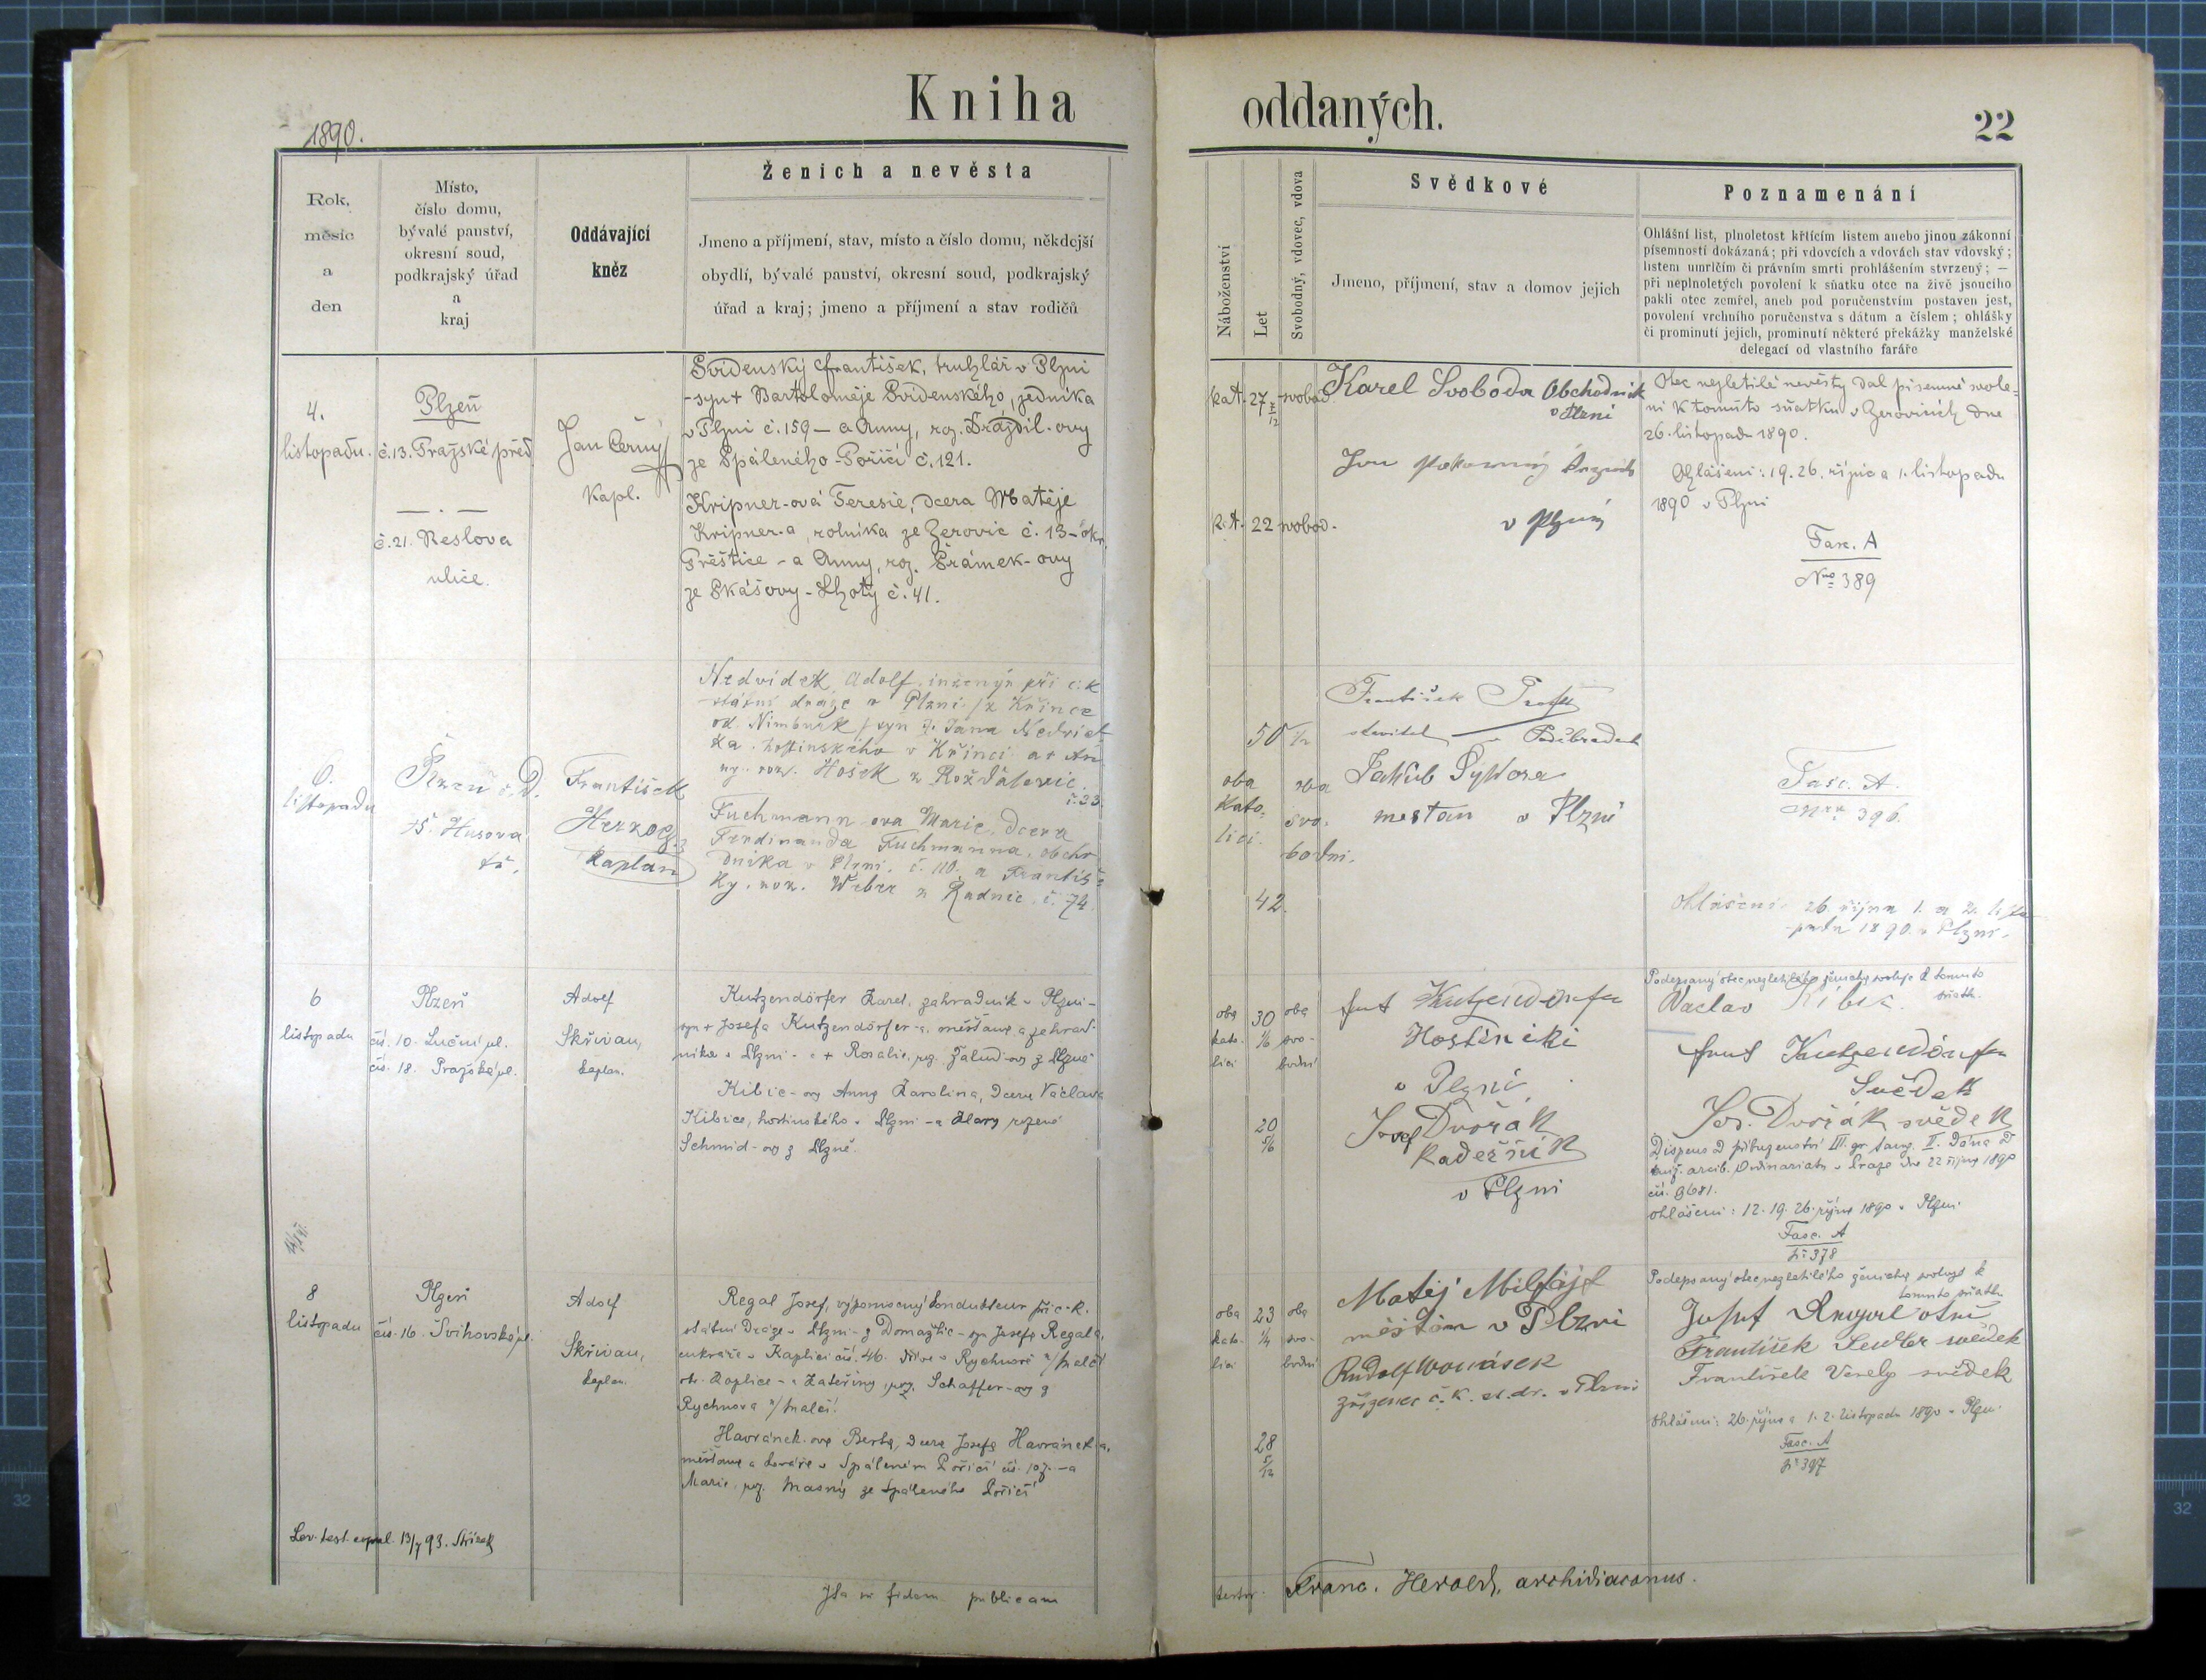 Kniha oddaných.
22
1890.
Rok,
měsíc
a
den
Místo,
číslo domu,
bývalé panství,
okresní soud,
podkrajský úřad
a
kraj
Oddávající
kněz
Ženich a nevěsta
Jmeno a příjmení, stav, místo a číslo domu, někdejší
obydlí, bývalé panství, okresní soud, podkrajský
úřad a kraj; jmeno a příjmení a stav rodičů
Náboženství
Let
Svobodný, vdovec, vdova
Svědkové
Jmeno, příjmení, stav a domov jejich
Poznamenání
Ohlášní list, plnoletost křtícím listem anebo jinou zákonní
písemností dokázaná; při vdovcích a vdovách stav vdovský;
listem umrlčím či právním smrti prohlášením stvrzený; —
při neplnoletých povolení k sňatku otce na živě jsoucího
pakli otec zemřel, aneb pod poručenstvím postaven jest,
povolení vrchního poručenstva s dátum a číslem; ohlášky
či prominutí jejich, prominutí některé překážky manželské
delegací od vlastního faráře
4.
listopadu.
Plzeň
č. 13. Pražské před.
č. 21. Veslova
ulice.
Jan Černý
Kapl.
Svidenský František, truhlář v Plzni
-syn + Bartoloměje Svidenského, zedníka
v Plzni č. 159 — a Anny, roz. Drázdil-ovy
ze Spáleného-Poříčí č. 121.
Kripner-ová Teresie, dcera Matěje
Kripner-a, rolníka ze Zerovic č. 13 - okr.
Přeštice - a Anny, roz. Šrámek-ovy
ze Skašovy-Lhoty č. 41.
kat. 27 svobod.
kat. 22 svobod.
Karel Svoboda Obchodník
v Plzni
Jan Pokorný
v Plzni
Otec nezletilé nevěsty dal písemné svole-
ní k tomuto sňatku v Zerovicích dne
26. listopadu 1890.
Ohlášení: 19. 26. října a 1. listopadu
1890 v Plzni
Fasc. A
Nro 389
6.
listopadu
Plzeň
Husova
tř.
František
Herzog
kaplan
Nedvídek Adolf inženýr při c. k.
státní dráze v Plzni / z Křince
od Nimburk / syn + Jana Nedvíd-
ka, hostinského v Křinci a + An-
ny roz. Hošek z Rožďalovic
č. 23.
Fuchmann-ova Marie, dcera
Ferdinanda Fuchmanna, obcho-
dníka v Plzni č. 110. a Františ-
ky, roz. Weber z Radnic č. 74.
oba
kato-
líci.
50
42.
oba
svo-
bodni.
František
stavitel v Poděbradech
Jakub Sykora
mestan v Plzni
Fasc. A.
Nro 396.
Ohlášení: 26. října 1. a 2. listo-
padu 1890. v Plzni.
6
listopadu
Plzeň
čís. 10. Luční ul.
čís. 18. Pražská ul.
Adolf
Skřivan,
kaplan.
Kutzendörfer Karel, zahradník v Plzni -
syn + Josefa Kutzendörfer-a, měšťana a zahrad-
níka v Plzni - a + Rosalie, roz. Žalud-ovy z Plzně
Kibic-ovy Anna Karolina, dcera Václava
Kibice, hostinského v Plzni - a Klary rozené
Schmid-ovy z Plzně.
oba
kato-
líci
30
1/6
20
5/6
oba
svo-
bodní
Kutzendörfer
Hostinský
v Plzni
Josef Dvořák
Kadeřník
v Plzni
Podepsaný otec nezletilého ženicha svoluje k tomuto
sňatku.
Václav Kibic
Kutzendörfer
Svědek
Jos. Dvořák svědek
Dispens
arcib. Ordinariatu v Praze dne 22 října 1890
čís. 9681.
Ohlášení: 12. 19. 26. října 1890 v Plzni
Fasc. A
№ 378
8
listopadu
Plzeň
čís. 16. Švihovská ul.
Adolf
Skřivan,
kaplan.
Regal Josef, výpomocný kondukteur při c. k.
státní dráze v Plzni - z Domažlic - syn Josefa Regala,
cukráře v Kaplici čís. 46. dříve v Rychnově n/Malčí
okr. Kaplice - a Kateřiny, roz. Schaffer-ovy z
Rychnova n/Malčí.
Havránek-ova Berta, dcera Josefa Havránek-a,
měšťana a kováře v Spáleném Poříčí čís. 107. - a
Marie, roz. Masný ze Spáleného Poříčí
oba
kato-
líci
23
1/4
28
5/12
oba
svo-
bodní
Matěj
měšťan v Plzni
Rudolf Wonásek
zřízenec c. k. st. dr. v Plzni
Podepsaný otec nezletilého ženicha svoluje k
tomuto sňatku
Josef Regal otec
František Sedler svědek
František Veselý svědek
Ohlášení: 26. října a 1. 2. listopadu 1890 v Plzni.
Fasc. A
№ 397
Lev. test. copul. 13/7 93. Stříšek
Ita in fidem publicam
testor. Franc. Herold, archidiaconus.